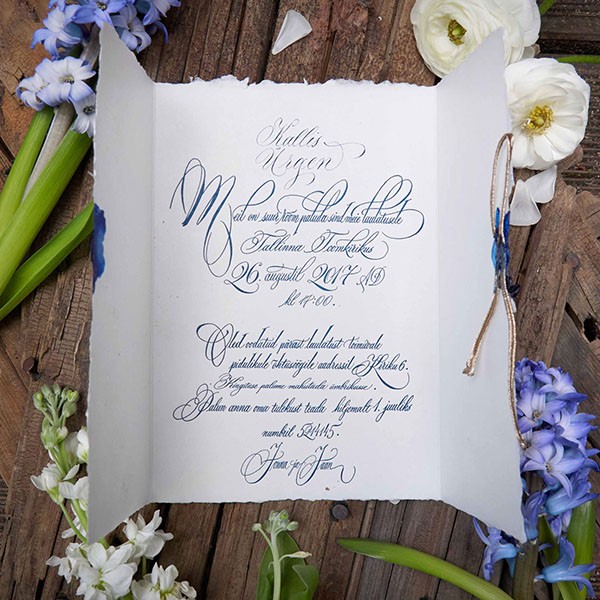 Kallis
Urgen
Meil on suur rõõm paluda sind meie laulatusele
Tallinna Toomkirikus
26. augustil 2017 AD
kl 17.00.
Oled oodatud pärast laulatust toimuvale
pidulikule õhtusöögile aadressil Kiriku 6.
Kingituse palume mahutada ümbrikusse!
Palun anna oma tulekust teada hiljemalt 1. juuliks
numbril 5214145.
Jenna ja Jaan